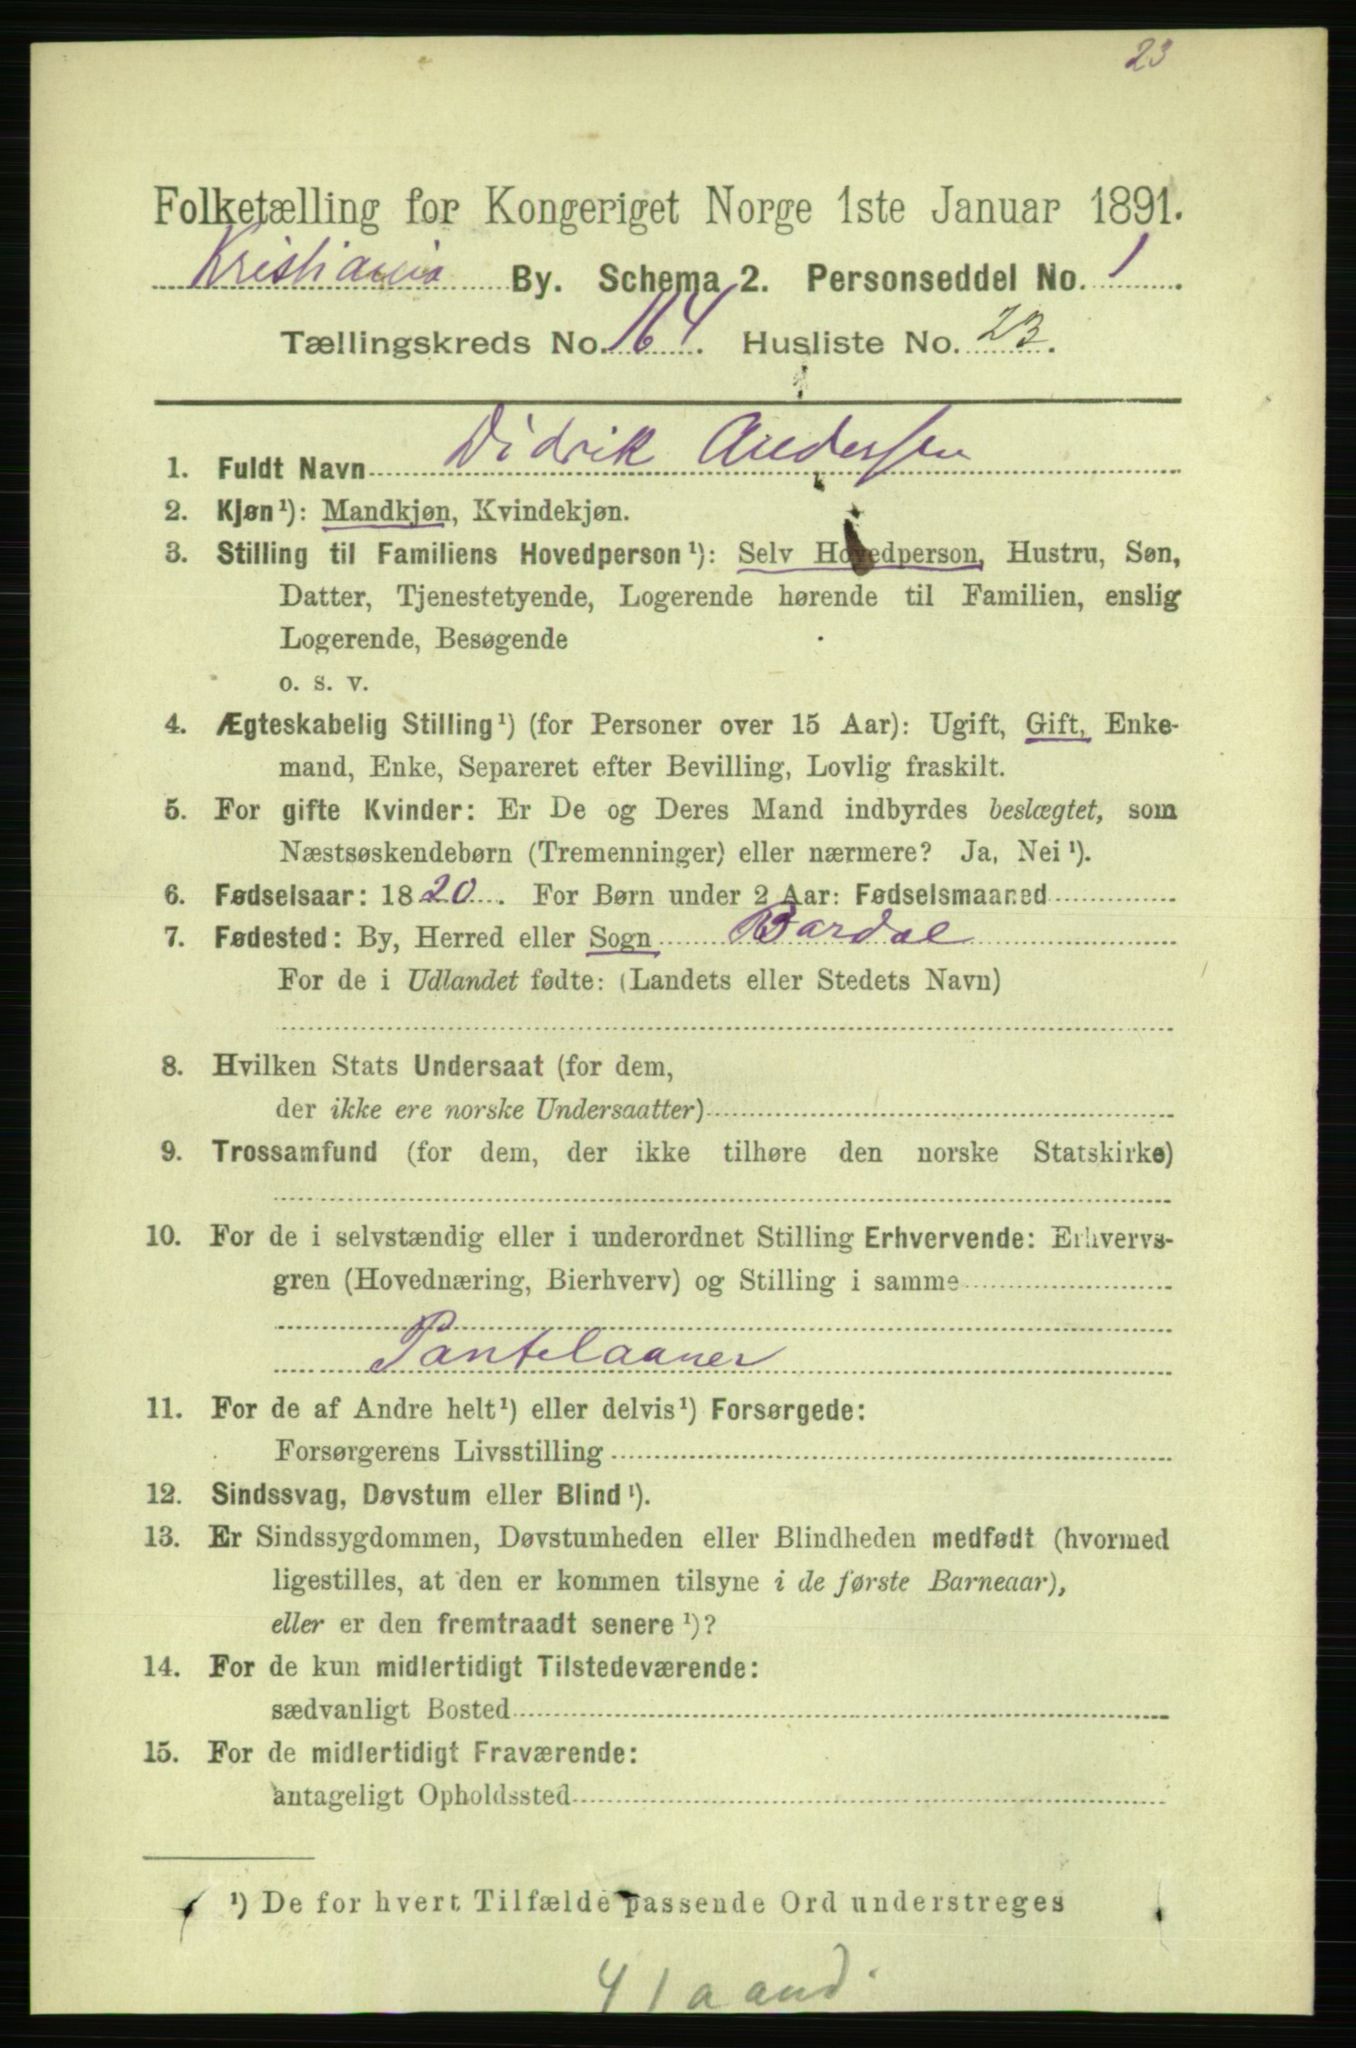 23
Folketælling for Kongeriget Norge 1ste Januar 1891.
Kristiania By. Schema 2. Personseddel No. 1
Tællingskreds No. 164. Husliste No. 23.
1. Fuldt Navn Didrik Andersen
2. Kjøn¹): Mandkjøn, Kvindekjøn.
3. Stilling til Familiens Hovedperson¹): Selv Hovedperson, Hustru, Søn,
Datter, Tjenestetyende, Logerende hørende til Familien, enslig
Logerende, Besøgende
o. s. v.
4. Ægteskabelig Stilling¹) (for Personer over 15 Aar): Ugift, Gift, Enke-
mand, Enke, Separeret efter Bevilling, Lovlig fraskilt.
5. For gifte Kvinder: Er De og Deres Mand indbyrdes beslægtet, som
Næstsøskendebørn (Tremenninger) eller nærmere? Ja, Nei¹).
6. Fødselsaar: 1820. For Børn under 2 Aar: Fødselsmaaned
7. Fødested: By, Herred eller Sogn Bardal
For de i Udlandet fødte: (Landets eller Stedets Navn)
8. Hvilken Stats Undersaat (for dem,
der ikke ere norske Undersaatter)
9. Trossamfund (for dem, der ikke tilhøre den norske Statskirke)
10. For de i selvstændig eller i underordnet Stilling Erhvervende: Erhvervs-
gren (Hovednæring, Bierhverv) og Stilling i samme
Pantelaaner
11. For de af Andre helt¹) eller delvis¹) Forsørgede:
Forsørgerens Livsstilling
12. Sindssvag, Døvstum eller Blind¹).
13. Er Sindssygdommen, Døvstumheden eller Blindheden medfødt (hvormed
ligestilles, at den er kommen tilsyne i de første Barneaar),
eller er den fremtraadt senere¹)?
14. For de kun midlertidigt Tilstedeværende:
sædvanligt Bosted
15. For de midlertidigt Fraværende:
antageligt Opholdssted
¹) De for hvert Tilfælde passende Ord understreges